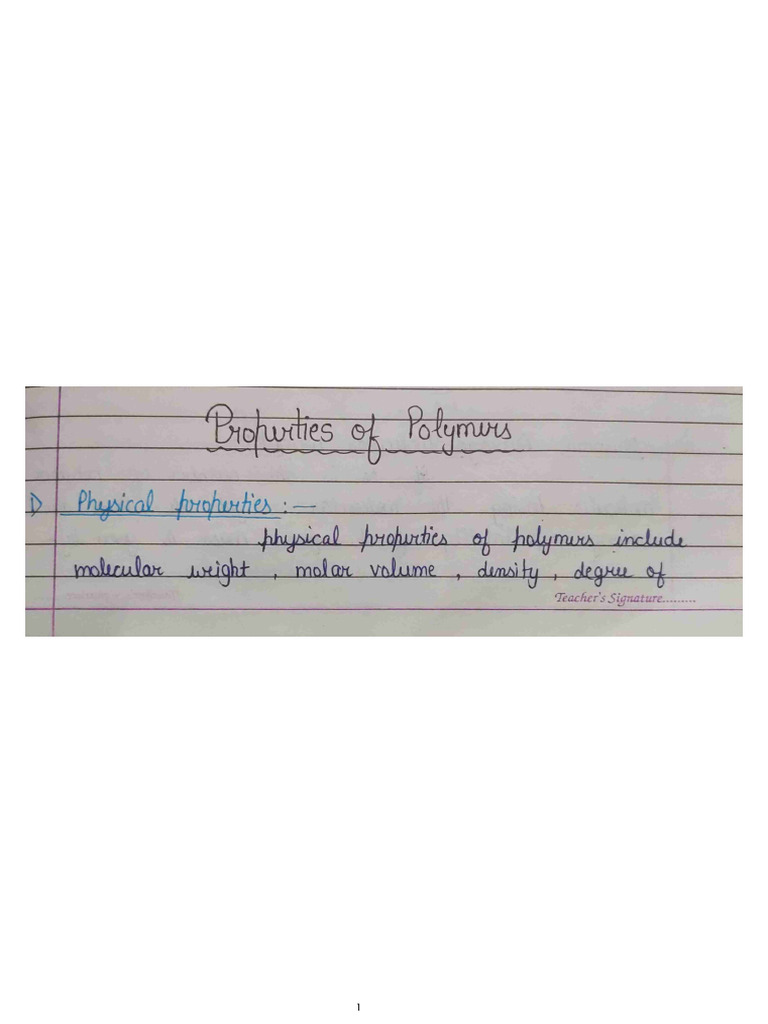 Properties of Polymers
1) Physical properties :—
physical properties of polymers include
molecular weight , molar volume , density , degree of
Teacher's Signature.........
1